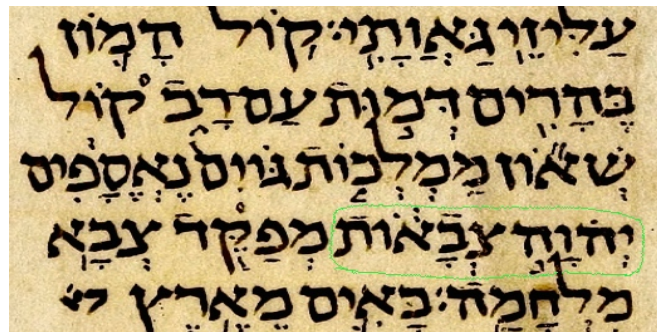 עַלִּיזֵי גַּאֲוָתִי׃ קוֹל הָמוֹן
בֶּהָרִים דְּמוּת עַם רָב קוֹל
שְׁאוֹן מַמְלְכוֹת גּוֹיִם נֶאֱסָפִים
יְהֹוָה צְבָאוֹת מְפַקֵּד צְבָא
מִלְחָמָה׃ בָּאִים מֵאֶרֶץ